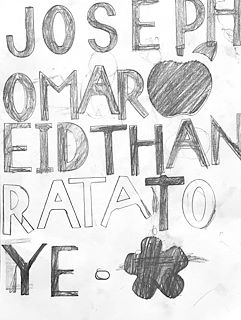 JOSEPH
OMAR
EIDTHAN
RATATO
YE -